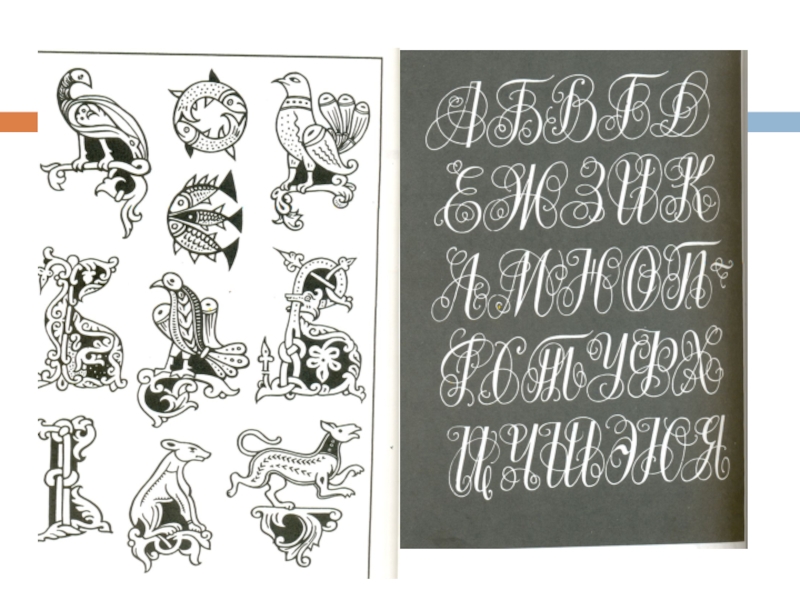 АБВГД
ЕЖЗИК
ЛМНОП
РСТУФХ
ЦЧШЭЮЯ